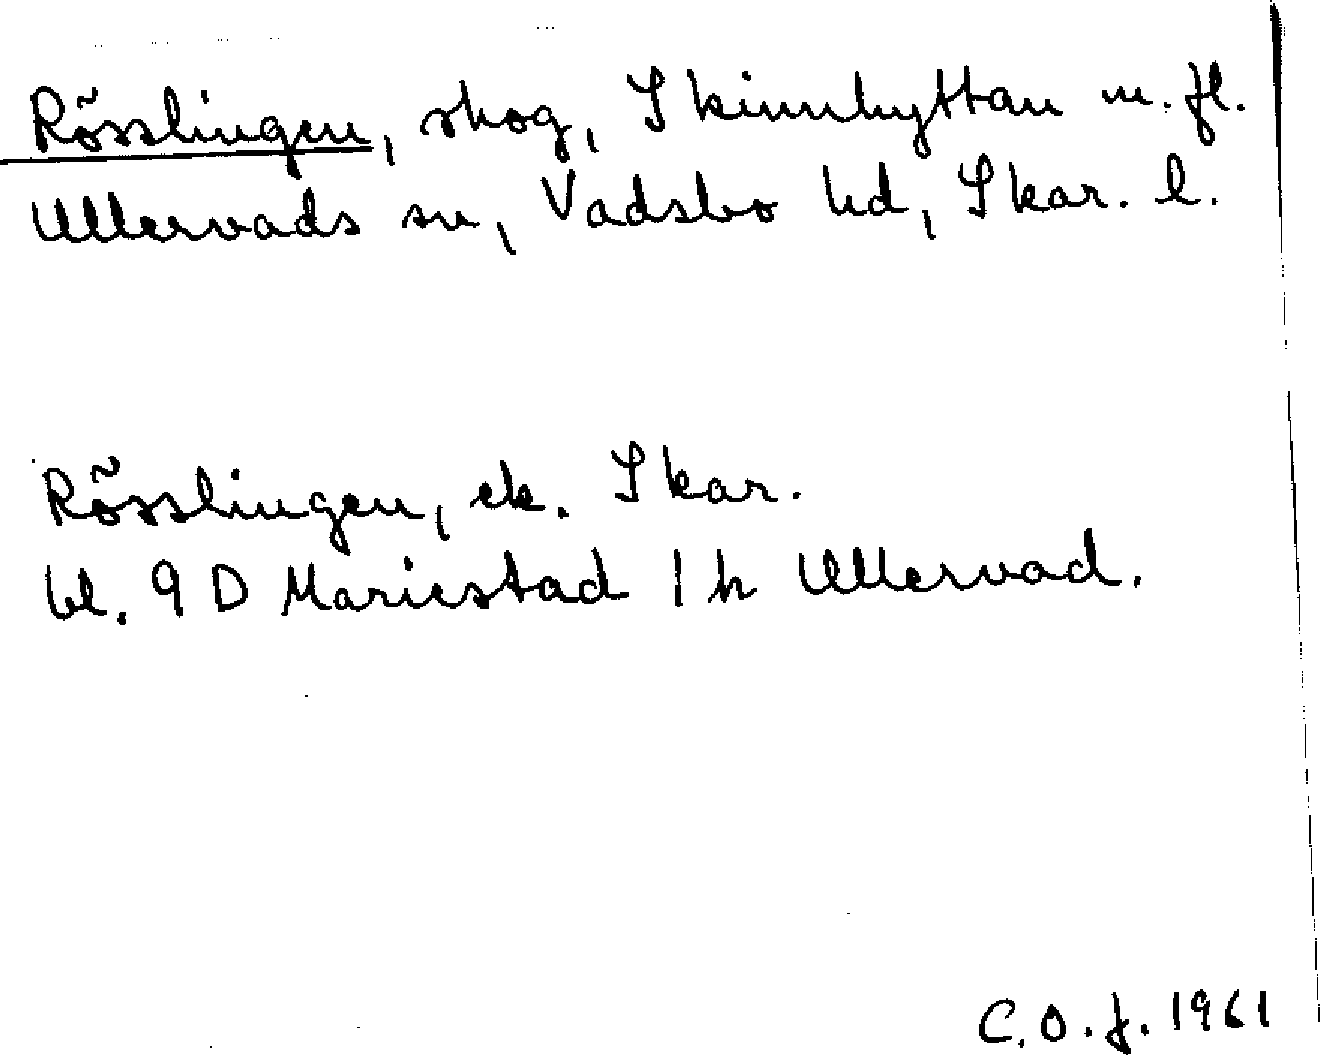 Rösslingen, skog, Skinnhyttan m. fl.
Ullervads sn, Vadsbo hd, Skar. l.
Rösslingen, ek. Skar.
bl. 9 D Mariestad 1 h Ullervad.
C. O. J. 1961